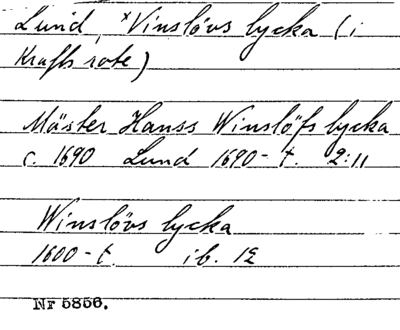 Lund, ×Vinslövs lycka (i
Krafts rote)
Mäster Hanss Winslöfs lycka
c. 1690 Lund 1690-t. 2:11
Winslövs lycka
1600-t. ib. 12
Nr 5856.